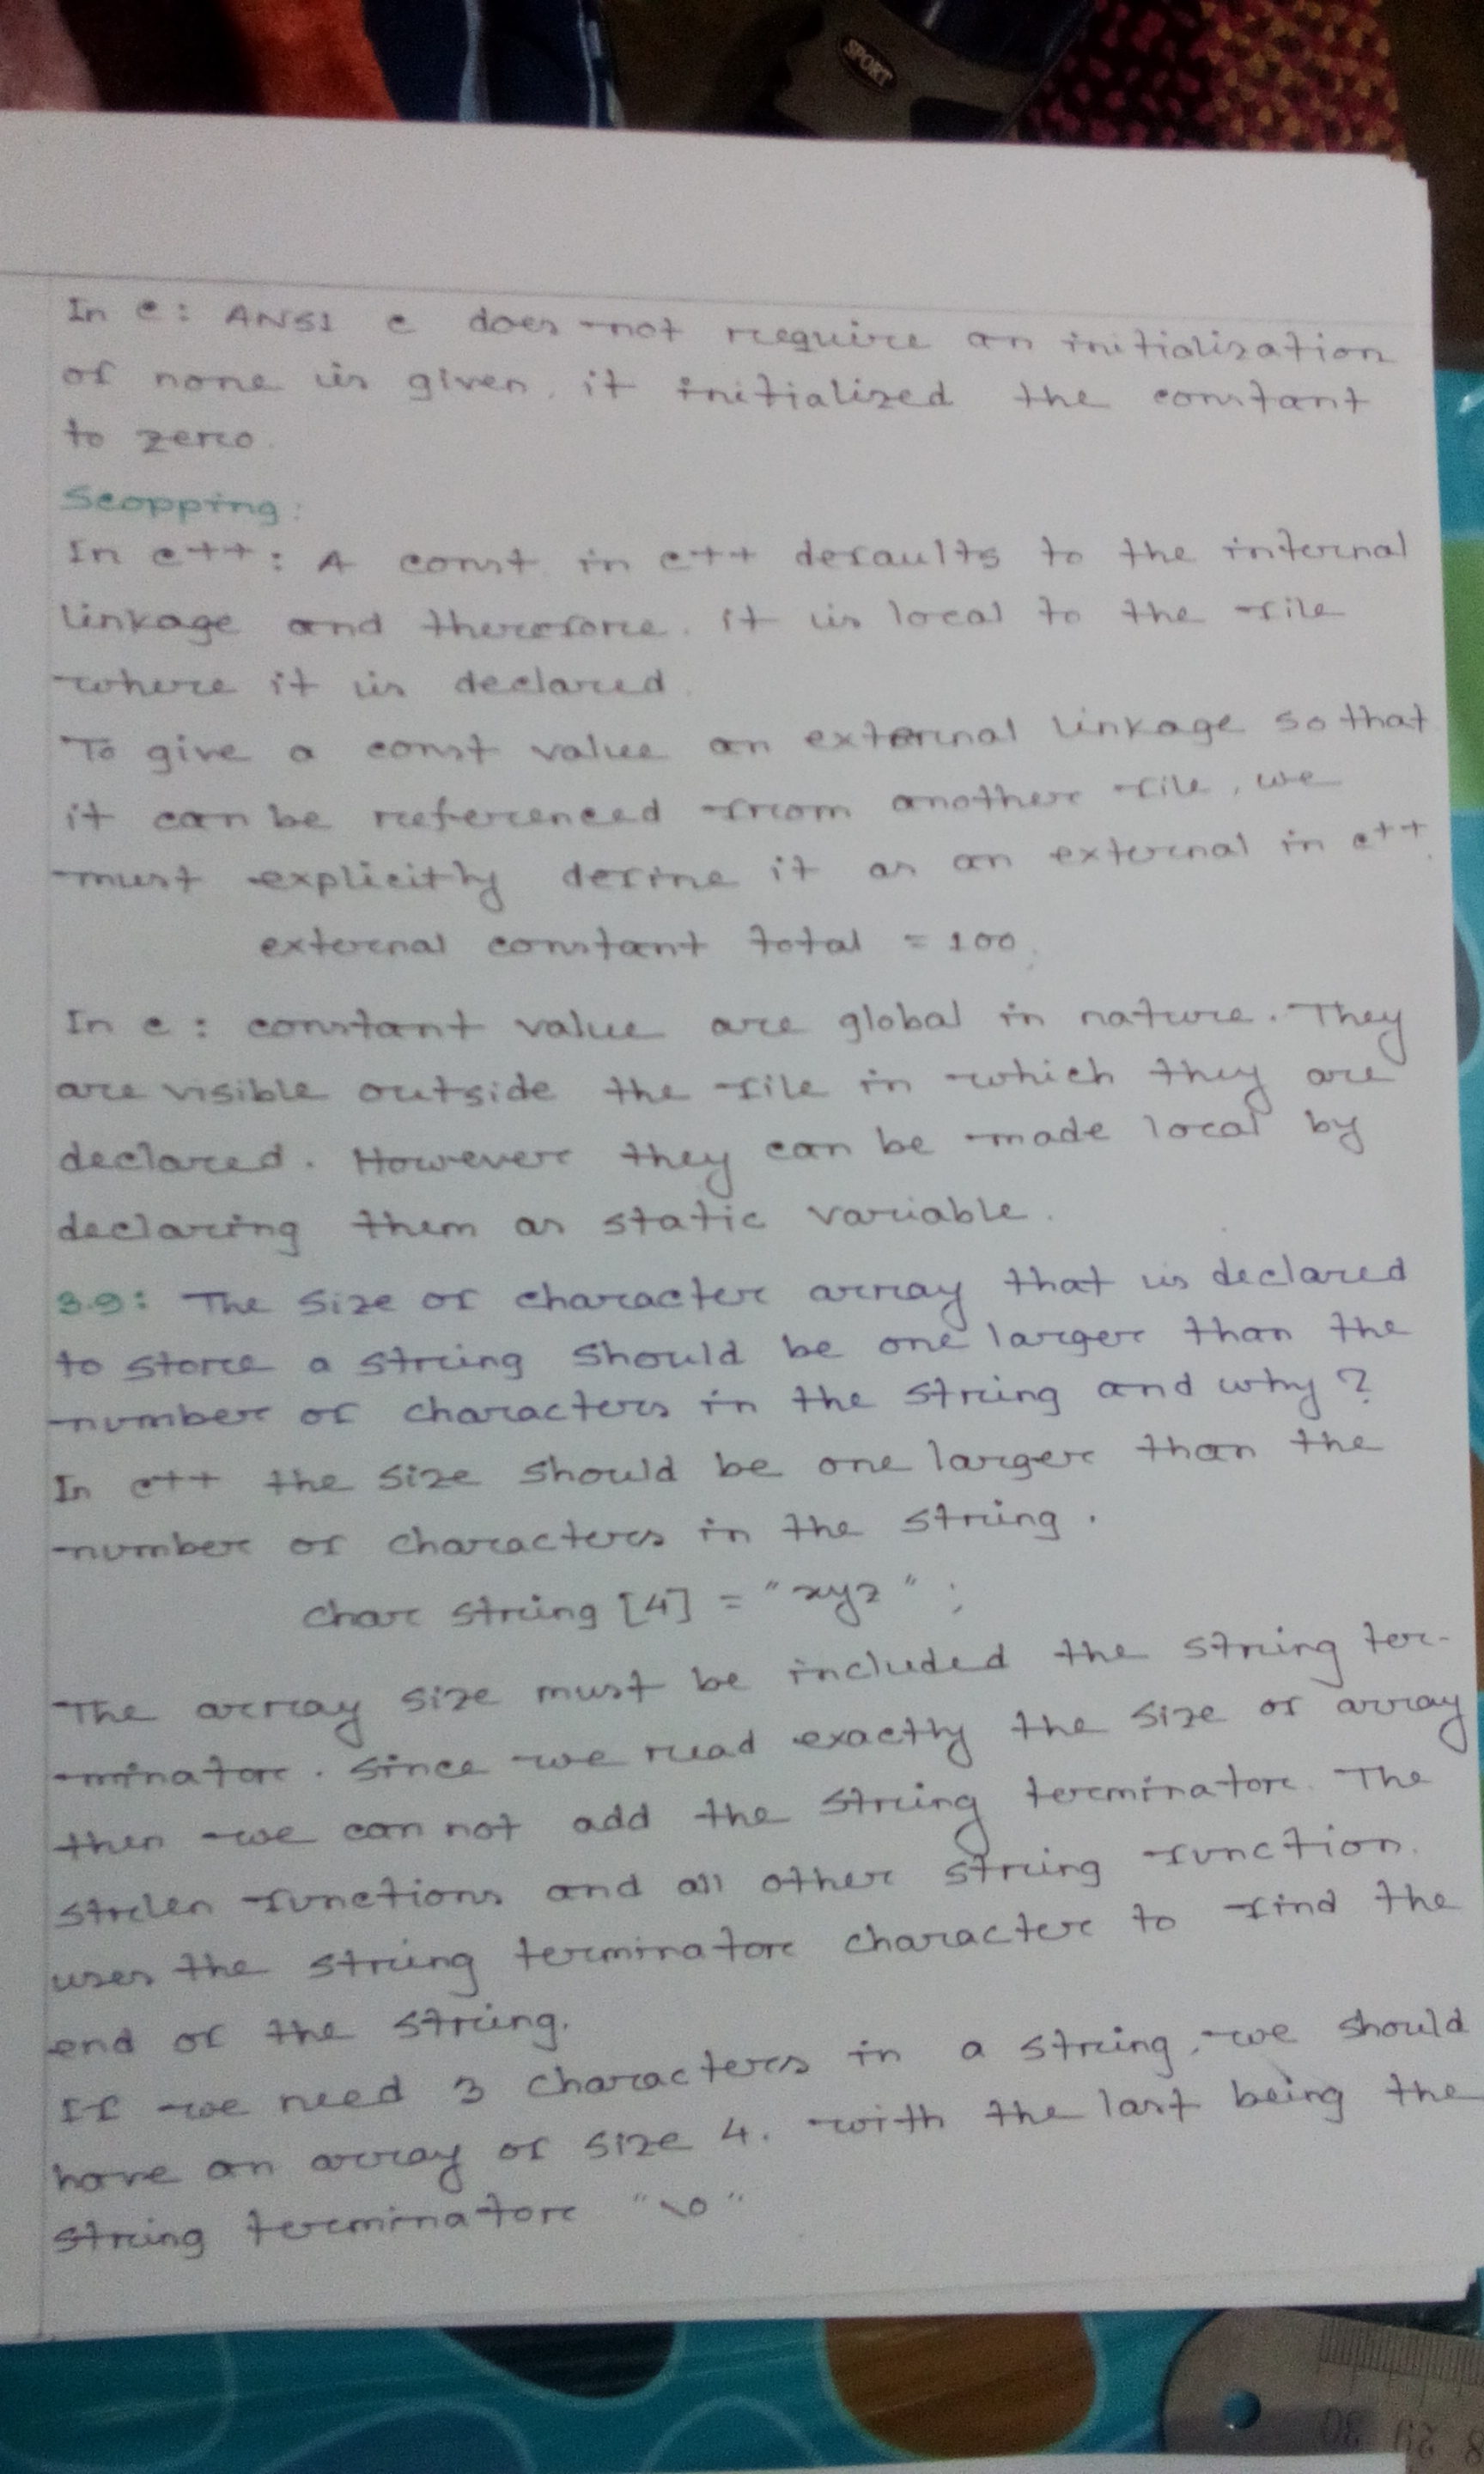 SPORT
In C: ANSI C does not require an initialization
of none is given, it initialized the constant
to zero.
Scopping:
In C++: A const in C++ defaults to the internal
linkage and therefore, it is local to the file
where it is declared.
To give a const value an external linkage so that
it can be referenced from another file, we
must explicitly define it as an external in C++.
external constant total = 100;
In C: constant value are global in nature. They
are visible outside the file in which they are
declared. However they can be made local by
declaring them as static variable.
3.9: The size of character array that is declared
to store a string should be one larger than the
number of characters in the string and why?
In C++ the size should be one larger than the
number of characters in the string.
char string [4] = "xyz";
The array size must be included the string ter-
minator. Since we read exactly the size of array
then we can not add the string terminator. The
strlen functions and all other string function.
uses the string terminator character to find the
end of the string.
If we need 3 characters in a string, we should
have an array of size 4. with the last being the
string terminator "\0"
30 29 8